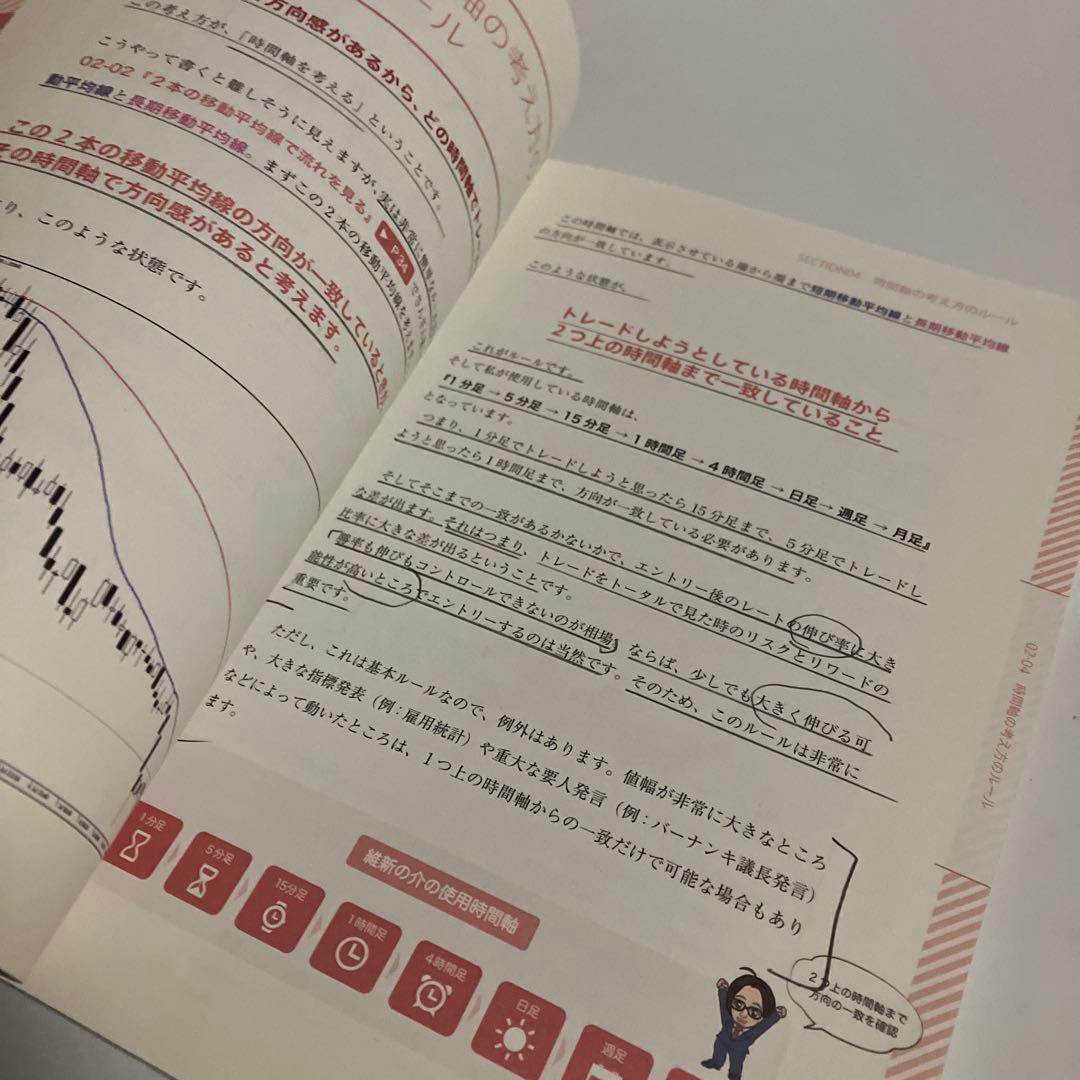 軸の考え方の
ール
方向感があるから、どの時間軸でトレ
この考え方が、「時間軸を考える」ということです。
こうやって書くと難しそうに見えますが、実は非常に簡単な
02-02『2本の移動平均線で流れを見る』▶P.34
動平均線と長期移動平均線。まずこの2本の移動平均線を考えま
この2本の移動平均線の方向が一致しているときが
その時間軸で方向感があると考えます。
り、このような状態です。
SECTION04 時間軸の考え方のルール
この時間軸では、表示させている端から端まで短期移動平均線と長期移動平均線
の方向が一致しています。
このような状態が、
トレードしようとしている時間軸から
2つ上の時間軸まで一致していること
これがルールです。
そして私が使用している時間軸は、
『1分足→5分足→15分足→1時間足→4時間足→日足→週足→月足』
となっています。
つまり、1分足でトレードしようと思ったら15分足まで、5分足でトレードし
ようと思ったら1時間足まで、方向が一致している必要があります。
そしてそこまでの一致があるかないかで、エントリー後のレートの伸び率に大き
な差が出ます。それはつまり、トレードをトータルで見た時のリスクとリワードの
比率に大きな差が出るということです。
「勝率も伸びもコントロールできないのが相場」ならば、少しでも大きく伸びる可
能性が高いところでエントリーするのは当然です。そのため、このルールは非常に
重要です。
ただし、これは基本ルールなので、例外はあります。値幅が非常に大きなところ
や、大きな指標発表（例：雇用統計）や重大な要人発言（例：バーナンキ議長発言）
などによって動いたところは、1つ上の時間軸からの一致だけで可能な場合もあり
ます。
維新の介の使用時間軸
1分足
5分足
15分足
1時間足
4時間足
日足
週足
2つ上の時間軸まで
方向の一致を確認
02-04 時間軸の考え方のルール